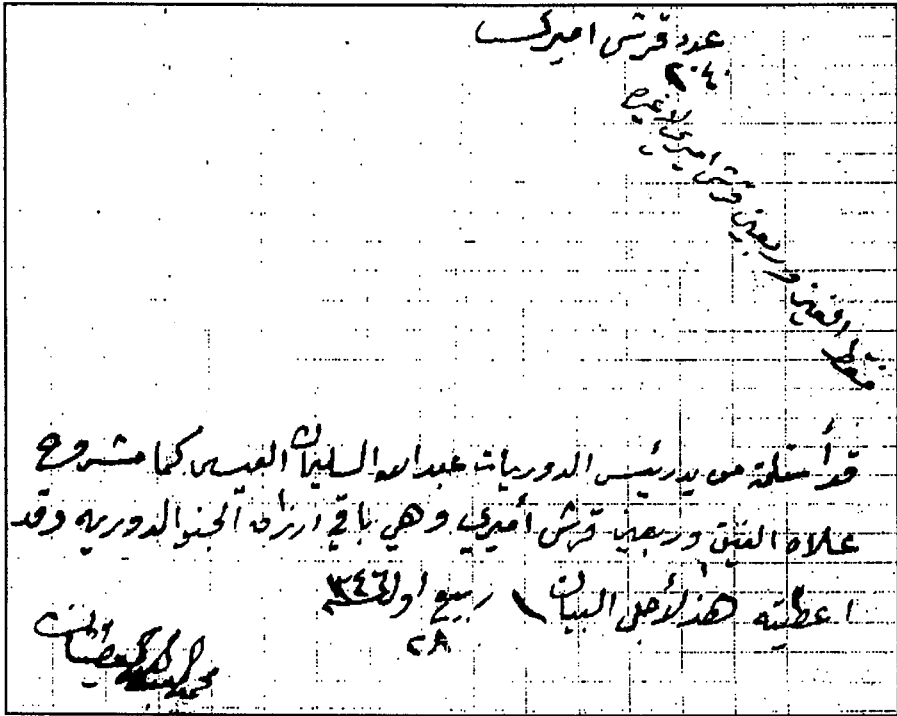 عدد قرش اميري
٢٠٤٠
فقط الفين وربعين قرش اميري لاغير
قد أستلمة من يد رئيس الدوريات عبدالله السليمان العيسى كما مشروح
علاه الفين وربعين قرش أميري وهي باقي ارزاق الجنو الدوريه وقد
اعطيته هذ لأجل البيان ربيع اول ٣٤٦
٢٨
محمد